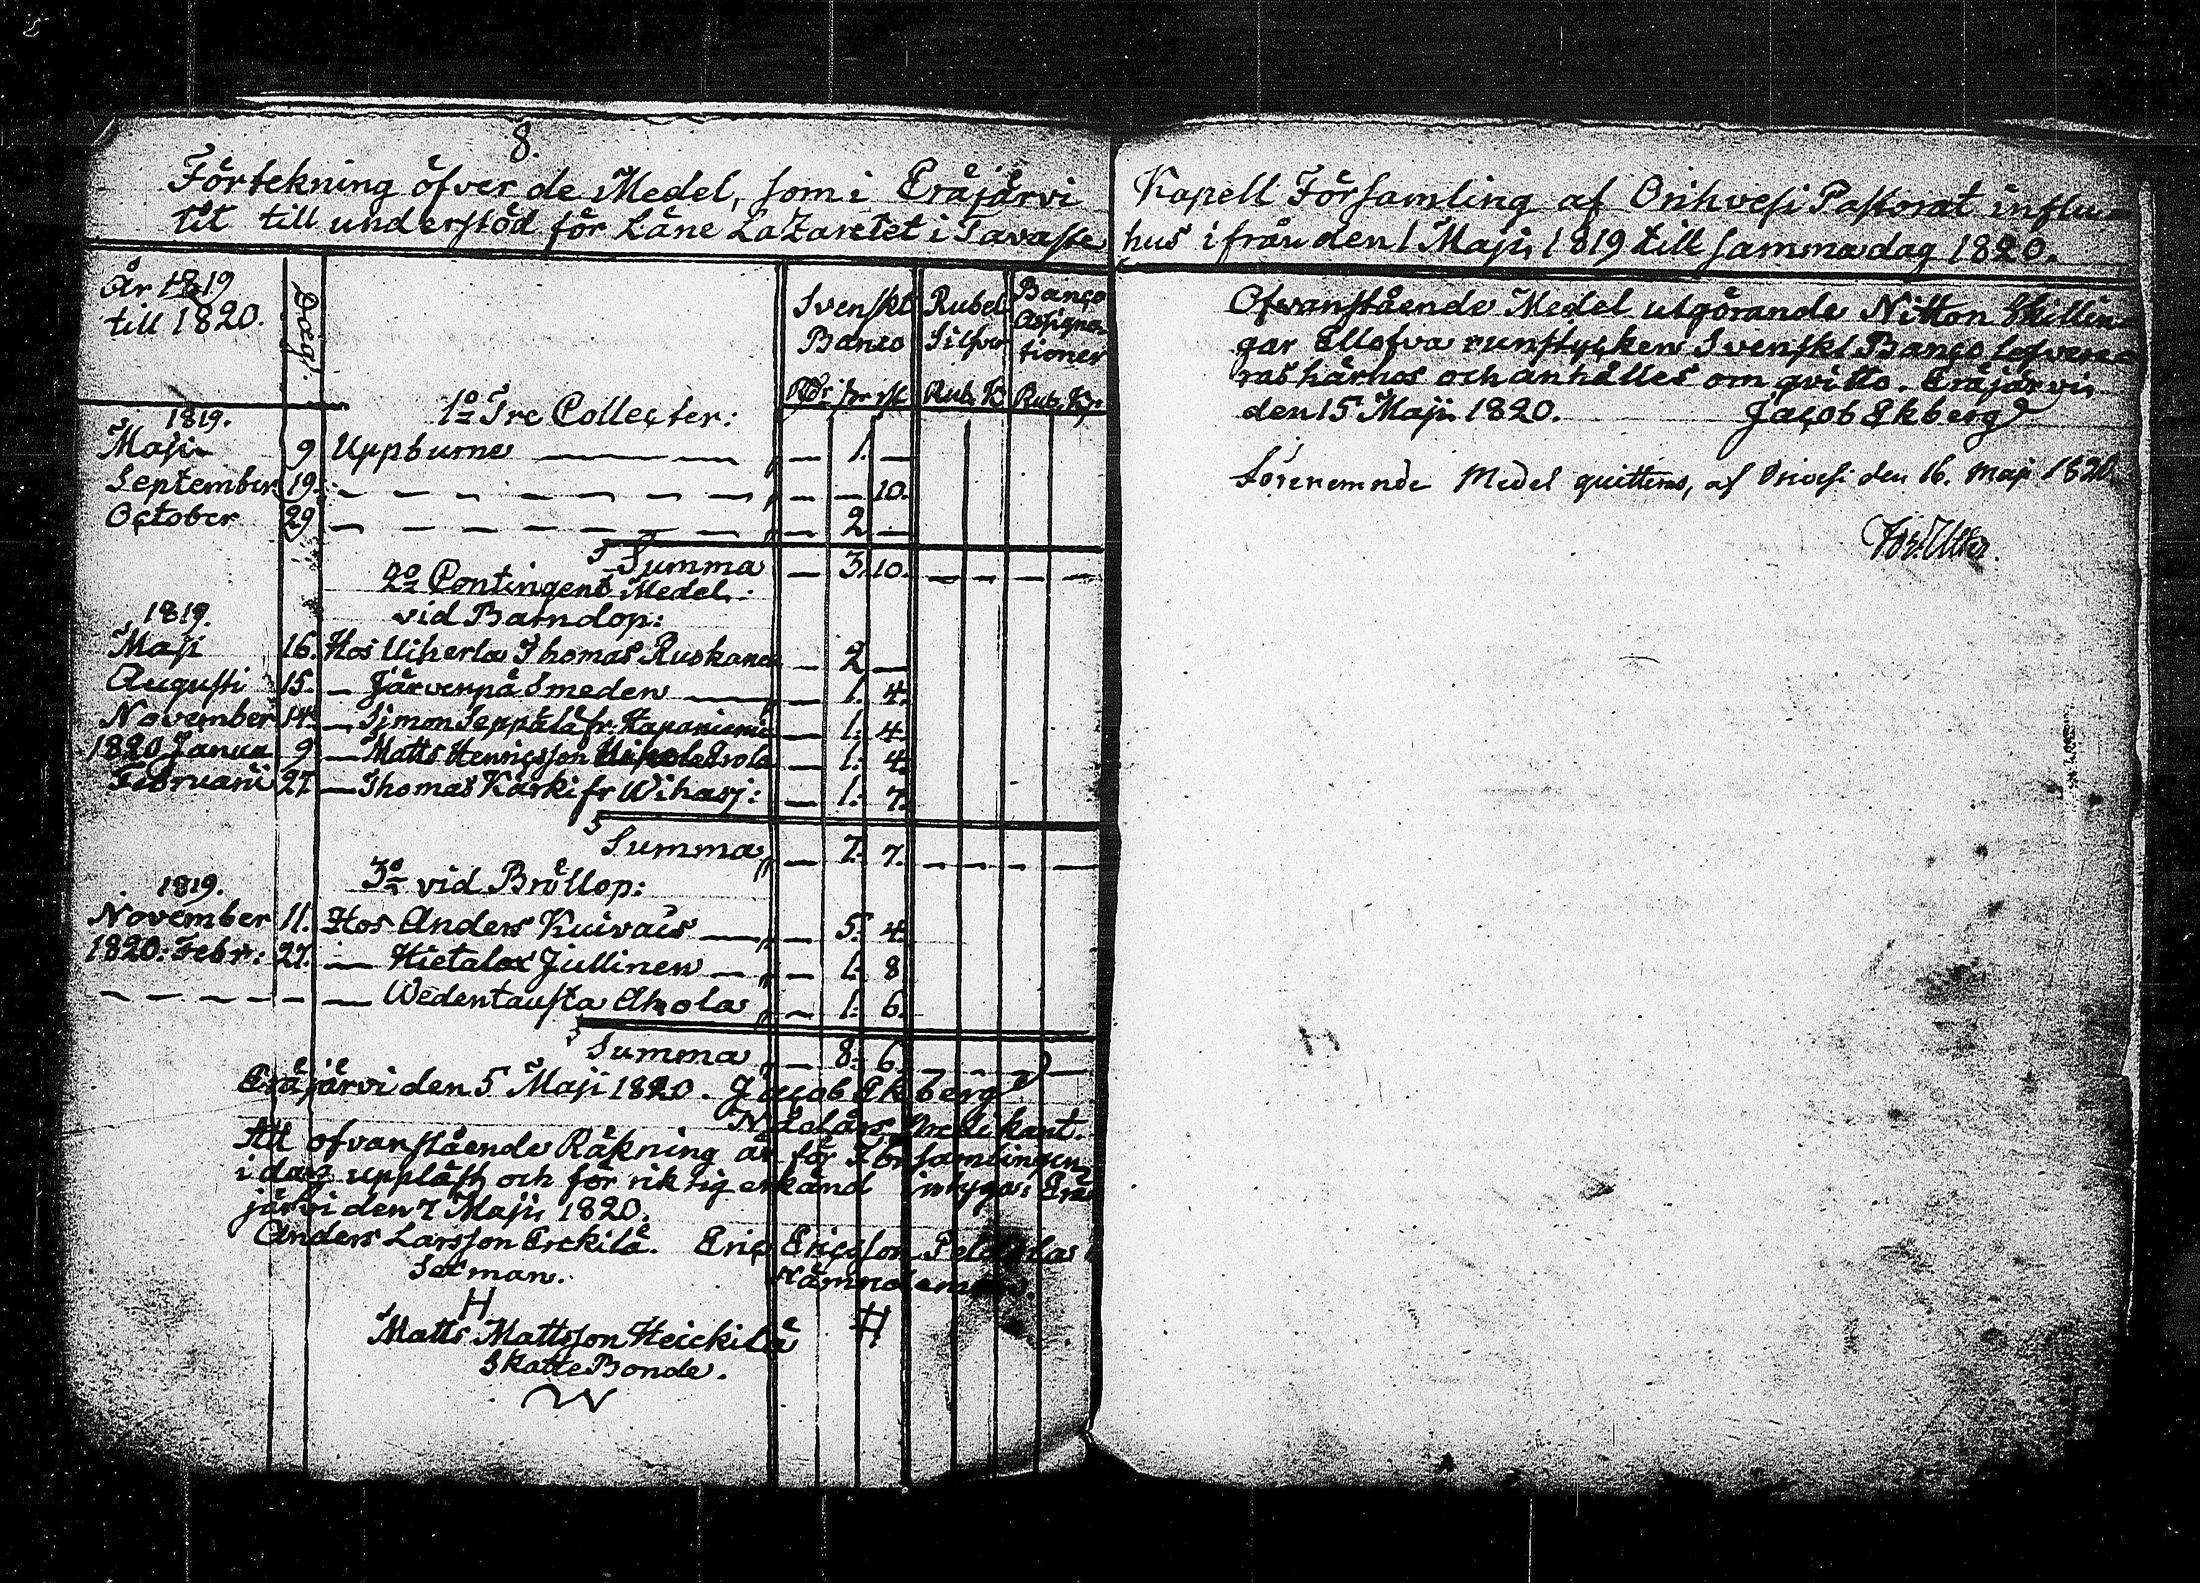 8.
Förtekning öfver de Medel, som i Eräjärvi Kapell Församling af Orihvesi Pastorat influ-
tit till understöd för Läne Lazaretet i Tavaste hus ifrån den 1 Maji 1819 till samma dag 1820.
År 1819 till 1820. Dagr. Svenskt Banco Rubel Silfver Banco Assigna-tioner
Rdr. sk rst. Rub. K Rub. Kp.
1o Tre Collecter:
1819.
Maji 9 Uppburne — — 1. —
September 19. — — — 10.
October 29 — — 2 —
Summa — 3. 10. — — — —
2o Contingent Medel
vid Barndop:
1819.
Maji 16. Hos Uiherla Thomas Ruokanen — 2 —
Augusti 15. — Järvenpä Smeden — — 1. 4.
November 14. — Simon Seppälä fr. Haponiemi — 1. 4.
1820 Janua 9 — Matts Henricsson — 1. 4.
Februarii 27 — Thomas Kärki fr Wihasj: — 1. 7.
Summa — 7. 7. — — — —
3o vid Bröllop:
1819.
November 11. Hos Anders Kuivais — — 5. 4.
1820. Febr: 27. — Hietala Jullinen — — 1. 8
— — — — Wedentausta Ahola — 1. 6.
Summa — 8. 6. — — — —
Eräjärvi den 5 Maji 1820. Jacob Ekberg
Nådårs Predikant.
Att ofvanstående Räkning är för Församlingen
i dag uppläst och för riktig erkänd intygas Erä
järvi den 7 Maji 1820.
Anders Larsson Erckilä. Eric Ericsson
Sexman. Nämndeman.
H #
Matts Mattsson Heickilä
Skatte Bonde.
W
Ofvanstående Medel utgörande Nitton Skillin-
gar Ellofva runstycken Svenskt Banco lefvere-
ras härhos och anhålles om qvitto. Eräjärvi
den 15 Maji 1820. Jacob Ekberg
Förenemnde Medel quitteras, af Orivesi den 16. Maji 1820.